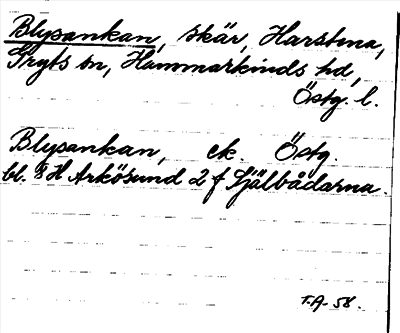 Blysankan, skär, Harstena,
Gryts sn, Hammarkinds hd,
Östg. l.
Blysankan, ek. Östg.
bl. 8 H Arkösund 2 f Själbådarna.
T.A-58.